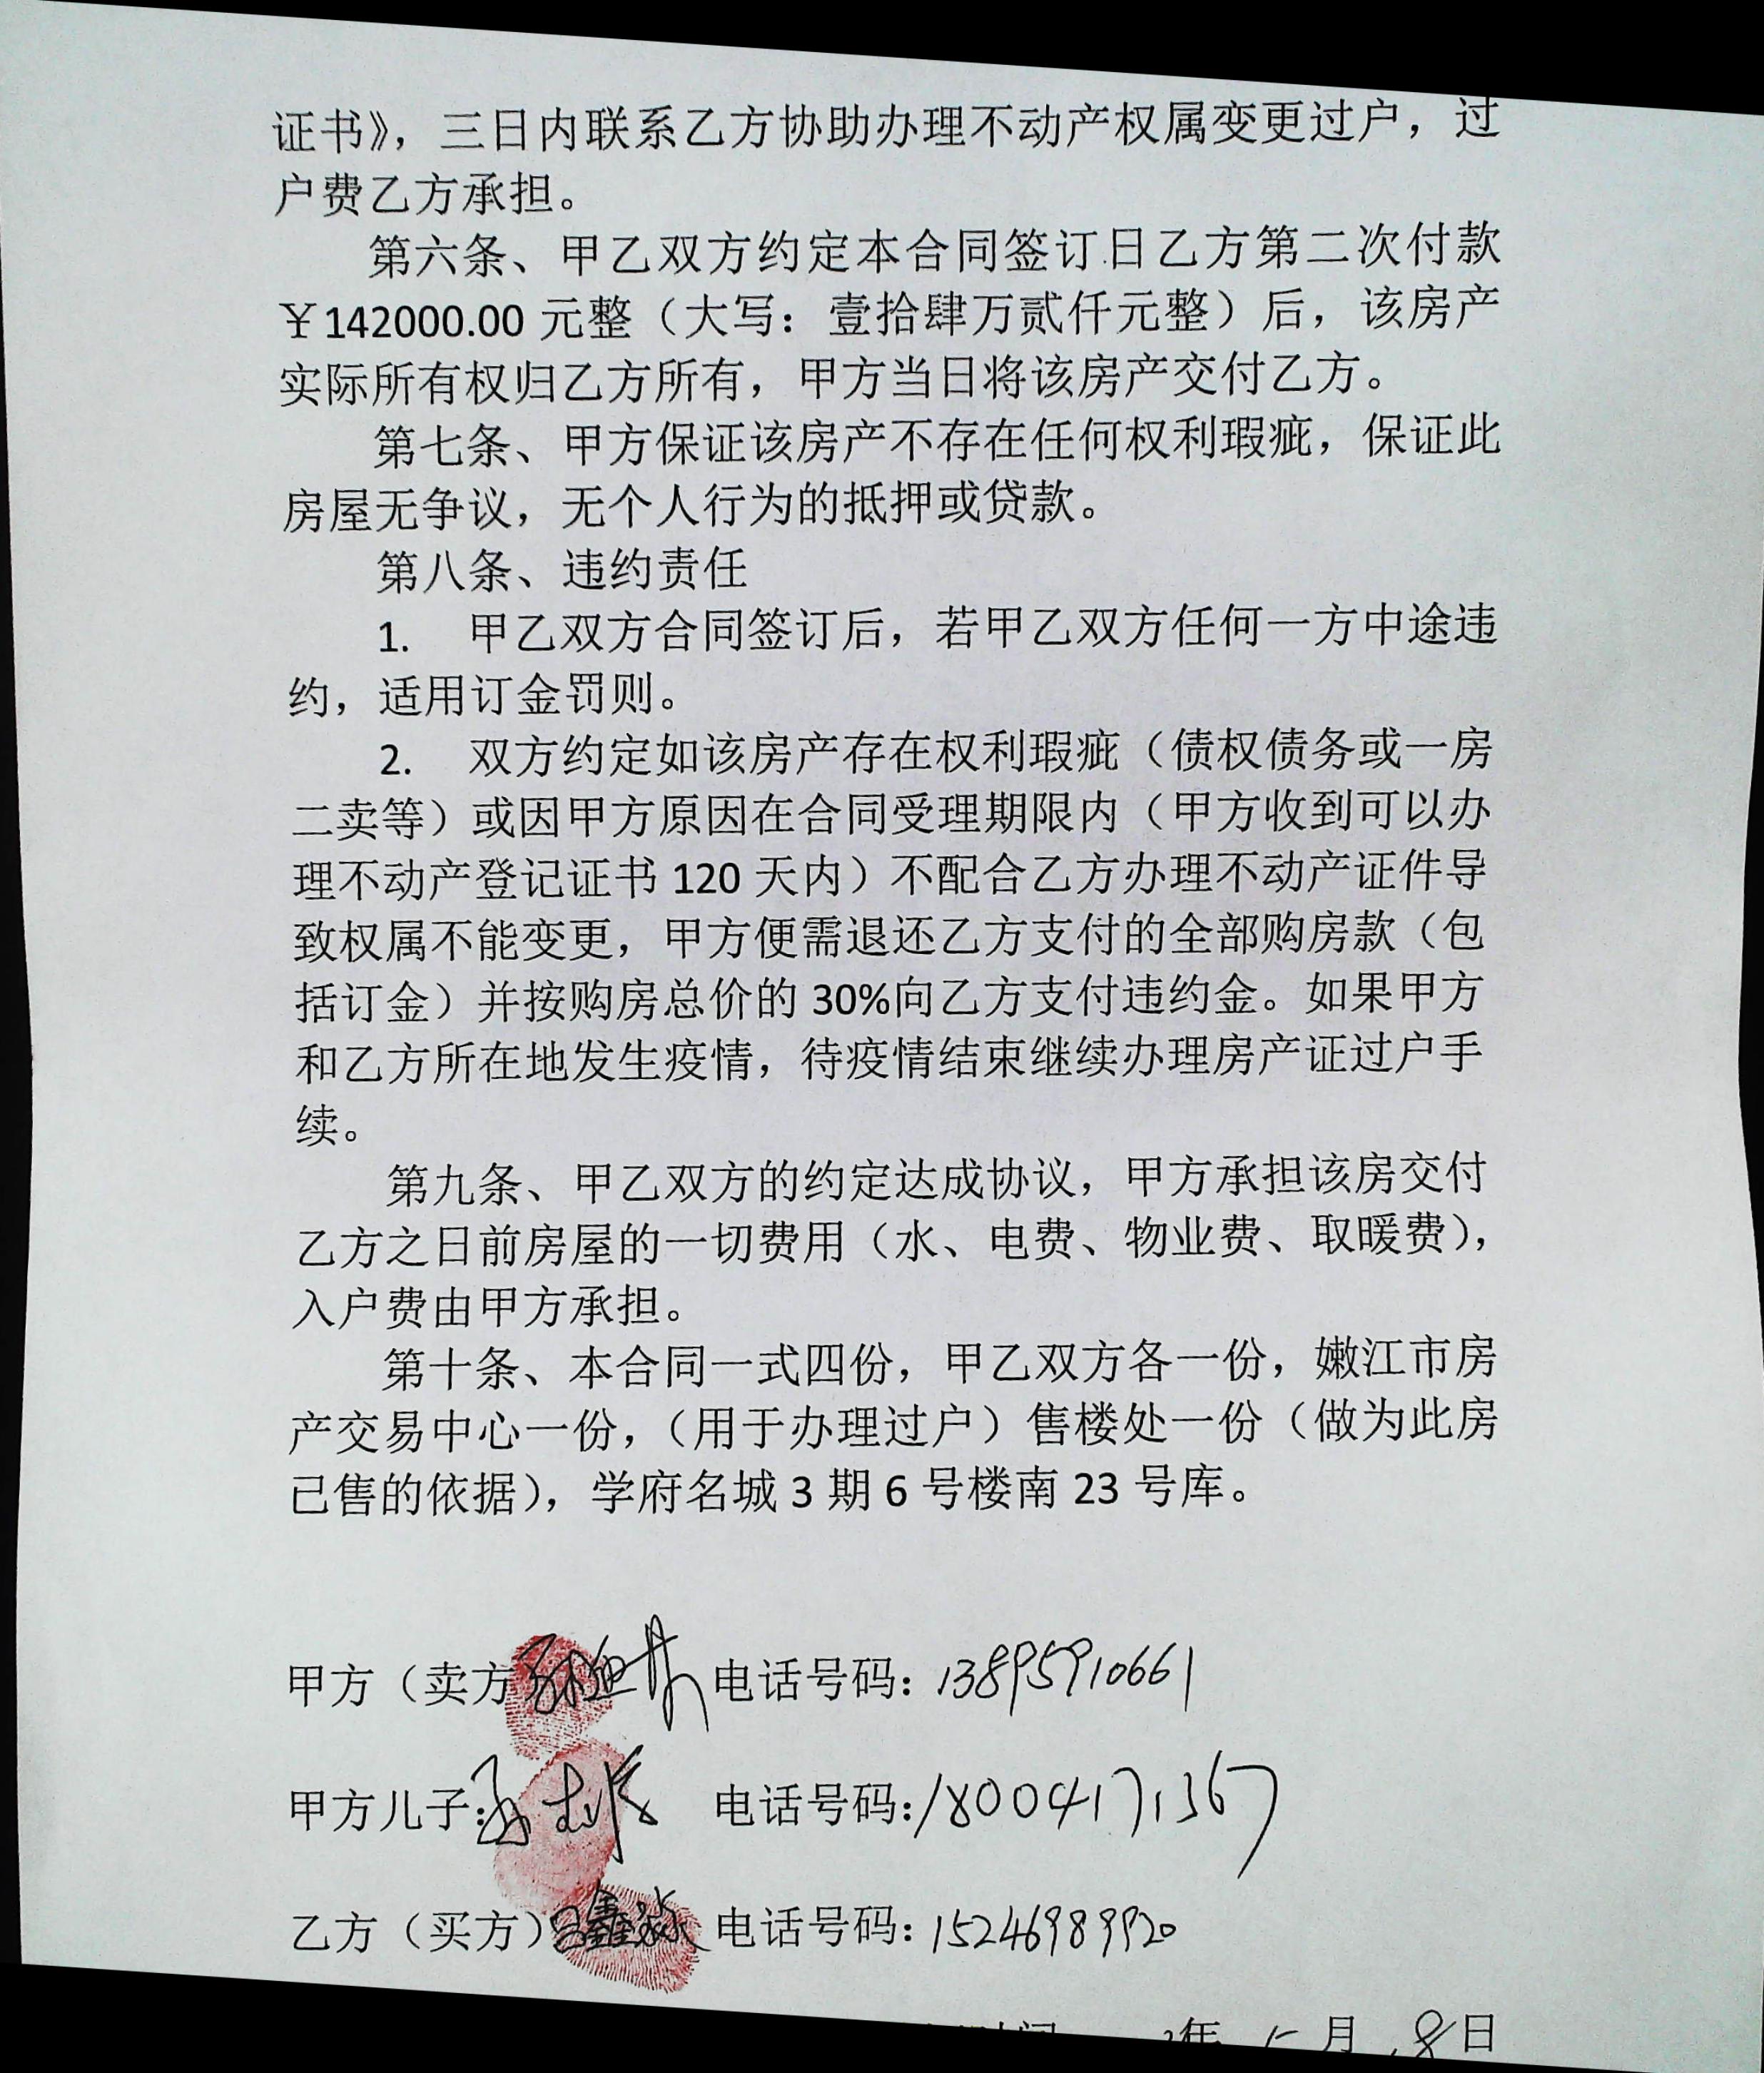 证书》，三日内联系乙方协助办理不动产权属变更过户，过
户费乙方承担。
第六条、甲乙双方约定本合同签订日乙方第二次付款
￥142000.00 元整（大写：壹拾肆万贰仟元整）后，该房产
实际所有权归乙方所有，甲方当日将该房产交付乙方。
第七条、甲方保证该房产不存在任何权利瑕疵，保证此
房屋无争议，无个人行为的抵押或贷款。
第八条、违约责任
1. 甲乙双方合同签订后，若甲乙双方任何一方中途违
约，适用订金罚则。
2. 双方约定如该房产存在权利瑕疵（债权债务或一房
二卖等）或因甲方原因在合同受理期限内（甲方收到可以办
理不动产登记证书 120 天内）不配合乙方办理不动产证件导
致权属不能变更，甲方便需退还乙方支付的全部购房款（包
括订金）并按购房总价的 30%向乙方支付违约金。如果甲方
和乙方所在地发生疫情，待疫情结束继续办理房产证过户手
续。
第九条、甲乙双方的约定达成协议，甲方承担该房交付
乙方之日前房屋的一切费用（水、电费、物业费、取暖费），
入户费由甲方承担。
第十条、本合同一式四份，甲乙双方各一份，嫩江市房
产交易中心一份，（用于办理过户）售楼处一份（做为此房
已售的依据），学府名城 3 期 6 号楼南 23 号库。
甲方（卖方 电话号码：13895910661
甲方儿子： 电话号码：18004171367
乙方（买方） 吕鑫淼 电话号码：15246989920
年 月 8日